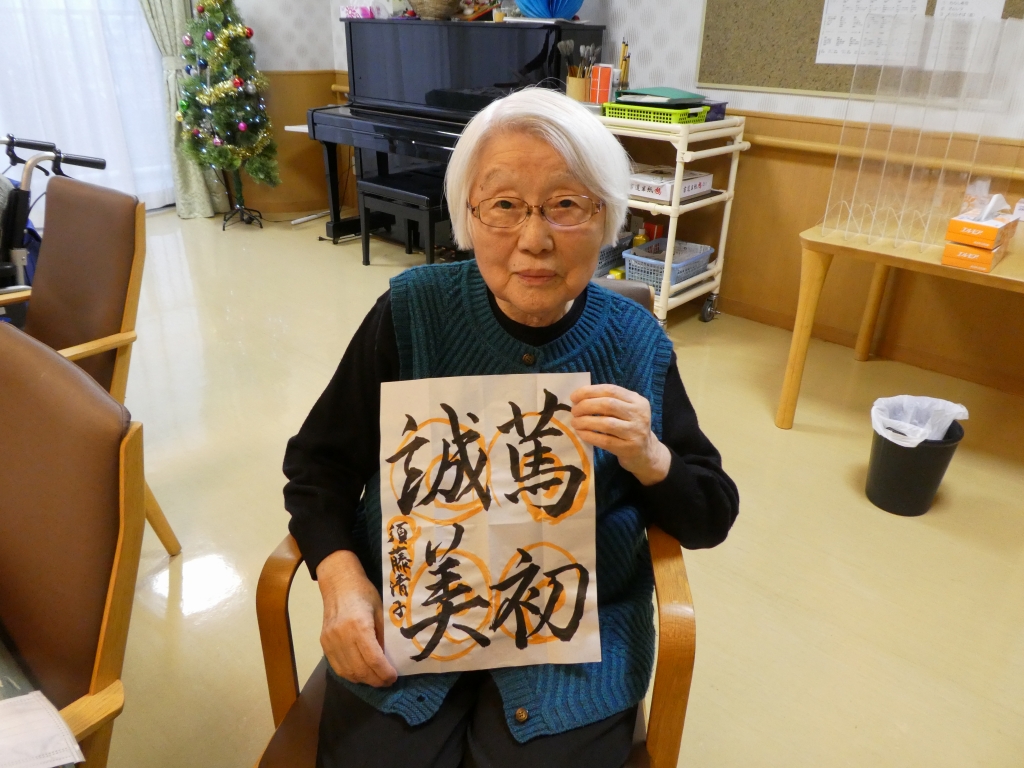 篤初
誠美
須藤清子